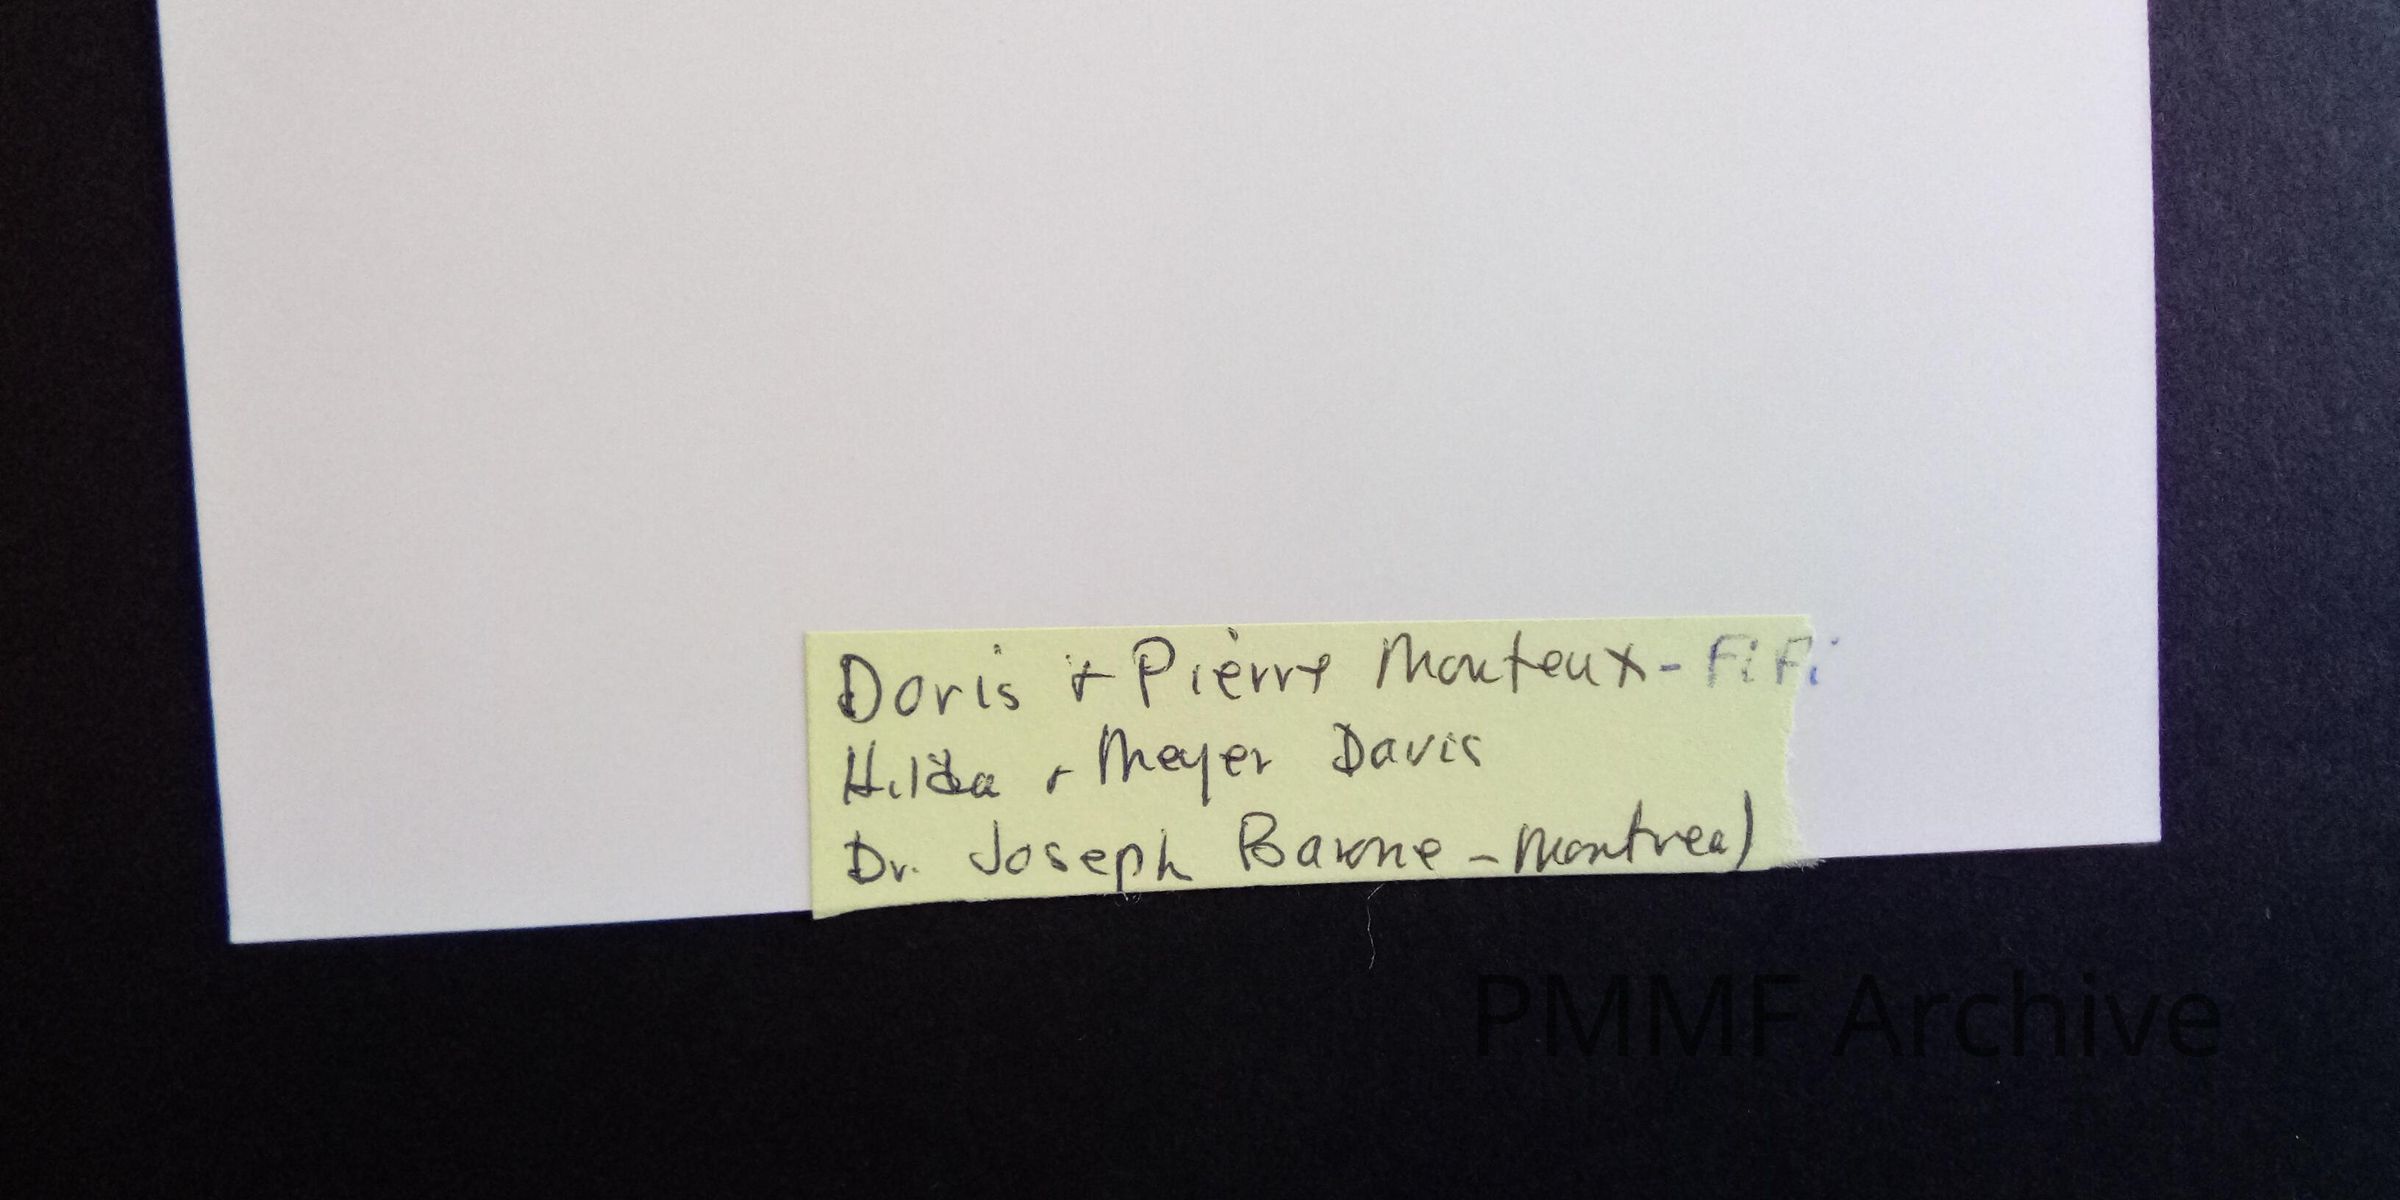 Doris + Pierre Monteux - Fifi
Hilda + Meyer Davis
Dr. Joseph Barone - Montreal
PMMF Archive